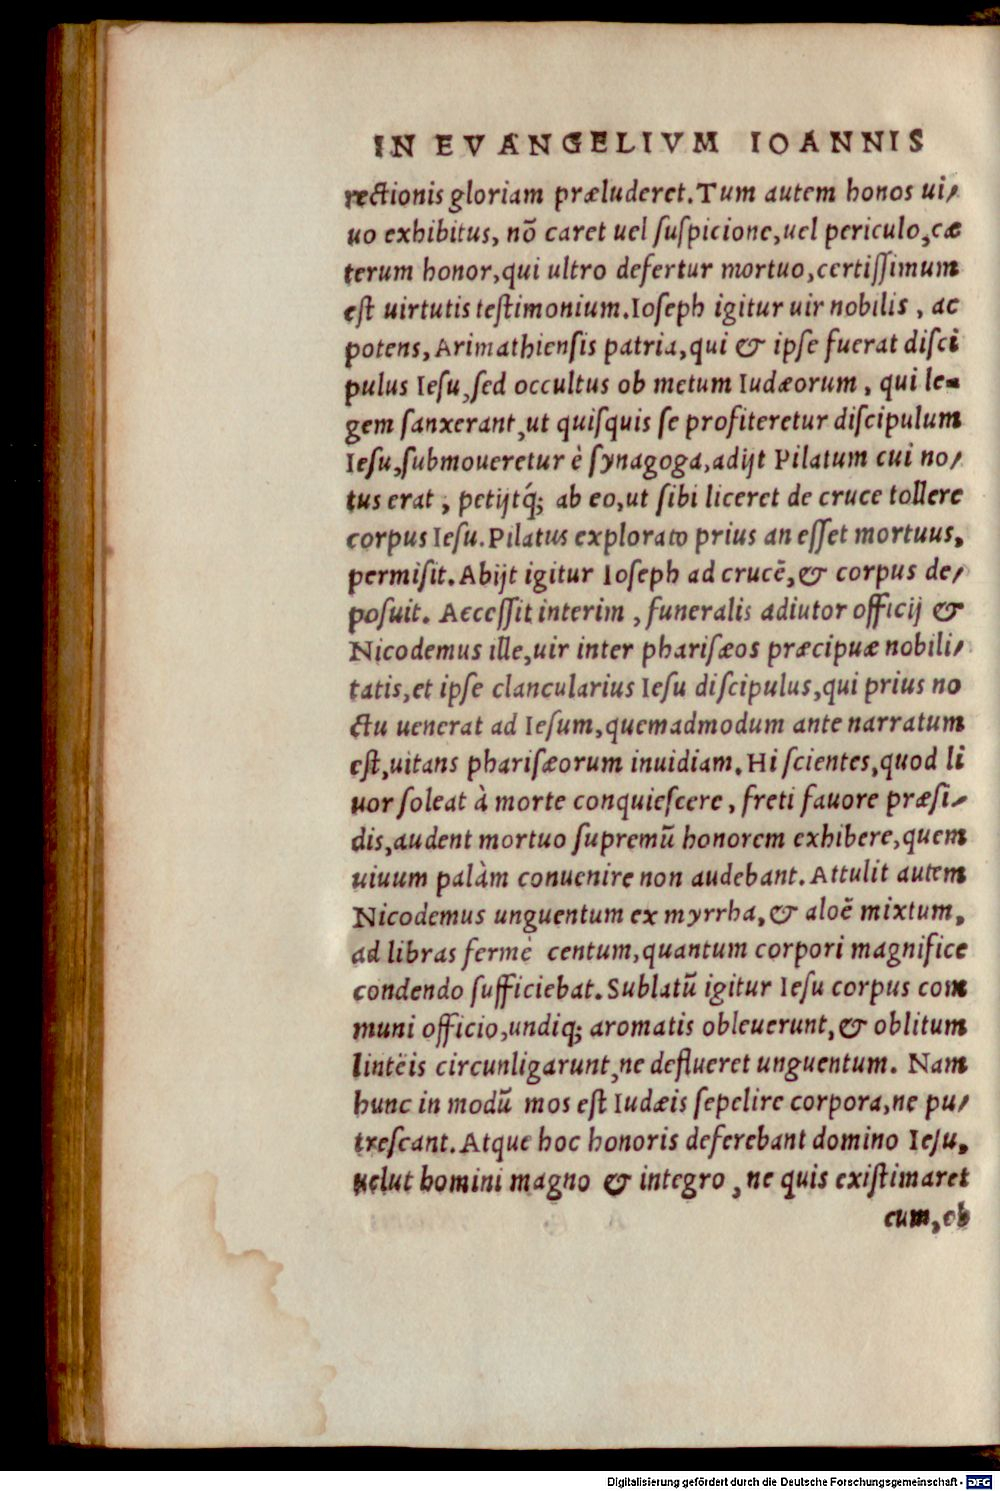 IN EVANGELIVM IOANNIS
rectionis gloriam præluderet. Tum autem honos ui/
uo exhibitus, nõ caret uel suspicione, uel periculo, cæ
terum honor, qui ultro defertur mortuo, certissimum
est uirtutis testimonium. Ioseph igitur uir nobilis, ac
potens, Arimathiensis patria, qui & ipse fuerat disci
pulus Iesu, sed occultus ob metum Iudæorum, qui le-
gem sanxerant, ut quisquis se profiteretur discipulum
Iesu, submoueretur è synagoga, adijt Pilatum cui no/
tus erat, petijtq́; ab eo, ut sibi liceret de cruce tollere
corpus Iesu. Pilatus explorato prius an esset mortuus,
permisit. Abijt igitur Ioseph ad crucẽ, & corpus de/
posuit. Accessit interim, funeralis adiutor officij &
Nicodemus ille, uir inter pharisæos præcipuæ nobili/
tatis, et ipse clancularius Iesu discipulus, qui prius no
ctu uenerat ad Iesum, quemadmodum ante narratum
est, uitans pharisæorum inuidiam. Hi scientes, quod li
uor soleat à morte conquiescere, freti fauore præsi/
dis, audent mortuo supremũ honorem exhibere, quem
uiuum palàm conuenire non audebant. Attulit autem
Nicodemus unguentum ex myrrha, & aloẽ mixtum,
ad libras fermè centum, quantum corpori magnifice
condendo sufficiebat. Sublatũ igitur Iesu corpus com
muni officio, undiq; aromatis obleuerunt, & oblitum
lintëis circunligarunt, ne deflueret unguentum. Nam
hunc in modũ mos est Iudæis sepelire corpora, ne pu/
trescant. Atque hoc honoris deferebant domino Iesu,
uelut homini magno & integro, ne quis existimaret
eum, ob
Digitalisierung gefördert durch die Deutsche Forschungsgemeinschaft - DFG